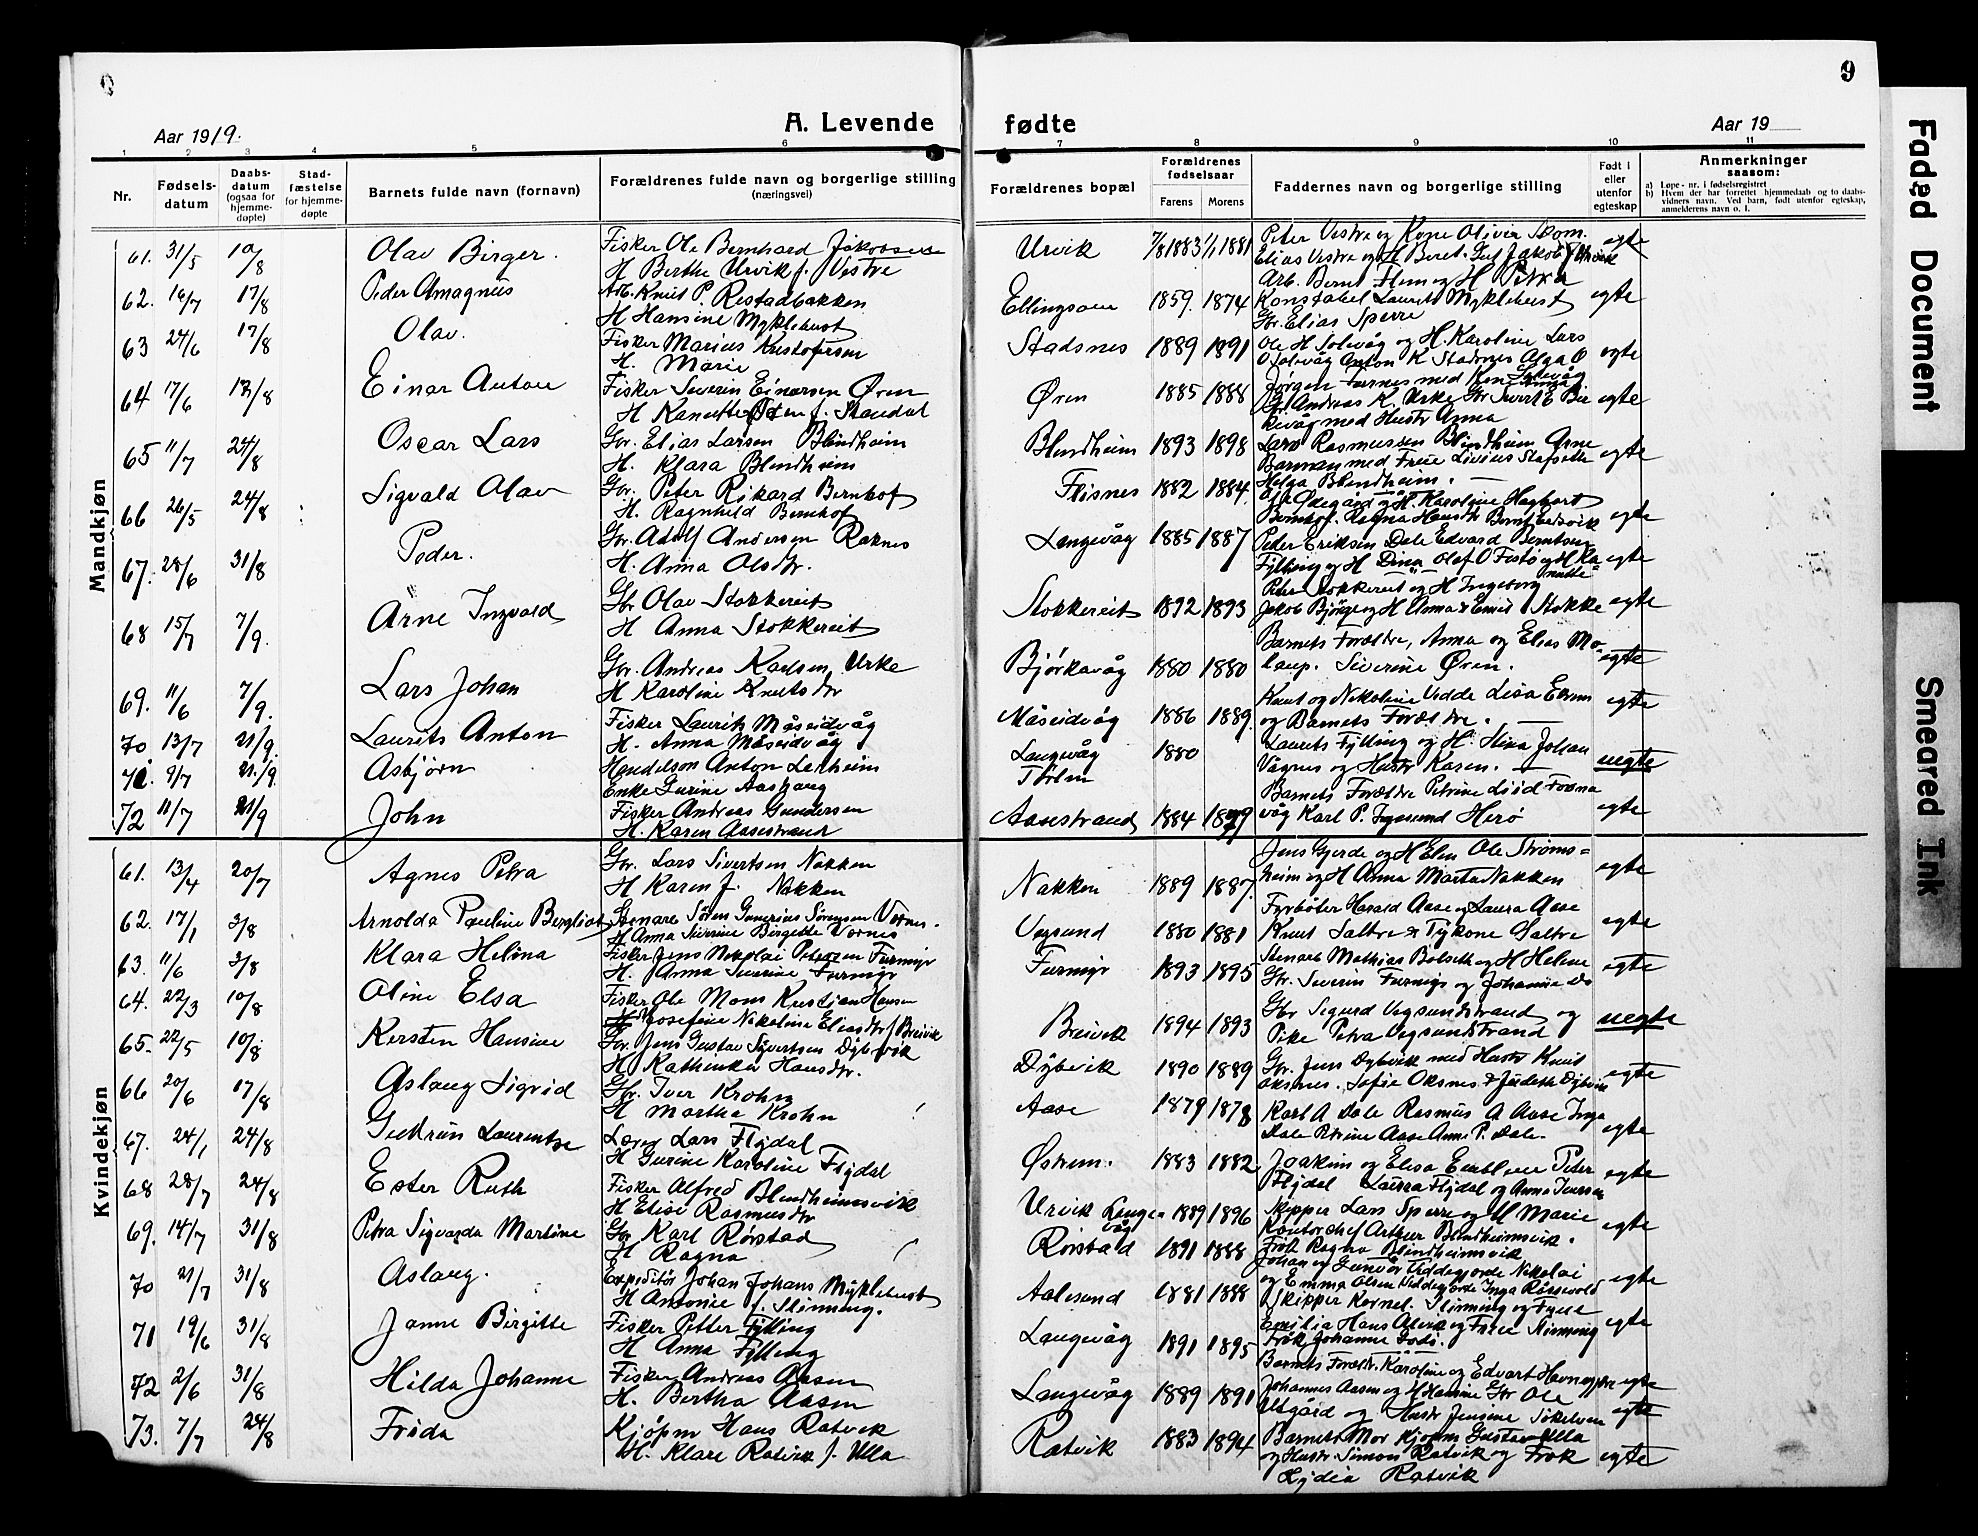 9
Aar 1919.
A. Levende
fødte
Aar 19
1 2 3 4 5 6 7 8 9 10 11
Nr.
Fødsels-
datum
Daabs-
datum
(ogsaa for
hjemme-
døpte)
Stad-
fæstelse
for hjemme-
døpte
Barnets fulde navn (fornavn)
Forældrenes fulde navn og borgerlige stilling
(næringsvei)
Forældrenes bopæl
Forældrenes
fødselsaar
Farens Morens
Faddernes navn og borgerlige stilling
Født i
eller
utenfor
egteskap
Anmerkninger
saasom:
a) Løpe-nr. i fødselsregistret
b) Hvem der har forrettet hjemmedaab og to daabs-
vidners navn. Ved barn, født utenfor egteskap,
anmelderens navn o. l.
Mandkjøn
61. 31/5 10/8 Olav Birger. Fisker Ole Bernhard Jakobsen
H Berthe Urvik f. Vestre
Urvik 7/8 1883 1/1 1881 Peter Vestre og Kone Olivia
Elias Vestre og H Beret. egte
62. 16/7 17/8 Peder Amagnus Arb. Knut P. Restadbakken
H. Hansine Myklebust
Ellingsøen 1859. 1874 Arb. Bernt Flem og H Petra
Konstabel Laurits Myklebust
Gbr. Elias Sperre egte
63 24/6 17/8 Olav. Fisker Marius Kristofersen
H. Marie
Stadsnes 1889 1891 Ole H Solevåg og H. Karoline Lars
O Solevåg Anton K Stadsnes Olga O
Solevåg egte
64 17/6 17/8 Einar Anton Fisker Severin Einersen Øren
H Kanutte Øren f. Standal
Øren 1885 1888 Jørgen Furnes med Kone
Gbr. Andreas K. Urke Gbr Sivert E Bir
kevåg med Hustr Anna egte
65 11/7 24/8 Oscar Lars Gbr. Elias Larsen Blindheim
H. Klara Blindheim
Blindheim 1893 1898 Lars Rasmussen Blindheim Arne
Barman med Frue Livius Slafsette
Helga Blindheim. egte
66 26/5 24/8 Sigvald Olav Gbr. Peter Rikard Bernhof
H. Ragnhild Bernhof
Flisnes 1882 1884. Ødegård og H. Karoline Hagbart
Bernhof. Ragna Hansdr Bernt Eidsvik egte
67. 28/6 31/8 Peder. Gbr. Adolf Andersen Raknes
H. Anna Olsdtr.
Langevåg 1885 1887 Peder Eriksen Dale Edvard Berntsen
Fylling og H Dina Olaf O Festø og H Ka-
nutte egte
68 15/7 7/9. Arne Ingvald Gbr Olav Stokkereit
H Anna Stokkereit
Stokkereit 1892 1893 Peter Stokkereit og H Ingeborg
Jakob Bjørge og H Anna & Emil Stokke egte
69. 11/6 7/9. Lars Johan Gbr. Andreas Karlsen Urke
H Karoline Knutsdtr
Bjørkavåg 1880 1880 Barnets Forældre, Anna og Elias Mo-
laup. Siverine Øren. egte
70 13/7 21/9. Laurits Anton Fisker Laurits Måseidvåg
H. Anna Måseidvåg
Måseidvåg 1886 1889. Knut og Nikoline Vedde Lisa
og Barnets Forældre. egte
71. 9/7 21/9. Asbjørn Handelsm Anton Lerheim
Enke Gurine Aashaug
Langevåg 1880 Laurits Fylling og H. Stina Johan
Vågnes og Hustr Karen. uegte
72 11/7 21/9 John Fisker Andreas Gundersen
H. Karen Aasestrand
Aasestrand 1884 1879 Barnets Forældre Petrine Liiid Forna
våg Karl P. Herø egte
Kvindekjøn
61. 13/4 20/7 Agnes Petra Gbr. Lars Sivertsen Nakken
H Karen f. Nakken
Nakken 1889 1887. Jens Gjerde og H Elen Ole Strøms=
heim og H Anna Marta Nakken egte
62. 17/1 3/8 Arnolda Pauline Bergliot Stenarb Søren Gunerius Sørensen Vornes.
H Anna Siverine Birgitte Vornes
Vegsund 1880 1881 Fyrbøter Harald Aase og Laura Aase
Knut Saltre & Pikone Saltre egte
63. 11/6 3/8 Klara Helina Fisker Jens Nikolai Petersen Furmyr
H. Anna Siverine Furmyr
Furmyr 1893 1895 Stenarb Mathias Bolseth og H Helene
Gbr. Severin Furmyr og Johanne Do egte
64. 22/3 10/8 Oline Elsa Fisker Ole Mons Kristian Hansen
Josefine Nikoline Eliasdtr f Breivik
Breivik 1894 1893 Gbr Sigurd Vegsundstrand og
Pike Petra Vegsundstrand uegte
65. 22/5 10/8 Kersten Hansine Gbr. Jens Gustav Sivertsen Dybvik
H. Kathinka Hansdtr.
Dybvik 1890 1889 Gbr. Jens Dybvik med Hustr Knut
Oksnes. Sofie Oksnes & Judithe Dybvik egte
66 20/6 17/8 Aslaug Sigrid Gbr. Iver Krohn
H Martha Krohn
Aase 1879 1878 Karl A Dale Rasmus A Aase Inga
Dale Petrine Aase Anne P. Dale. egte
67. 24/1 24/8 Gudrun Laurentze Lærer Lars Flydal
H Gurine Karoline Flydal
Østrem. 1883 1882. Joakim og Elisa Emblem Peter
Flydal Laura Flydal og Anna Iversen egte
68 28/7 24/8 Ester Ruth Fisker Alfred Blindheimsvik
H Elise Rasmusdtr
Urvik Lange-
våg 1889 1896 Skipper Lars Sperre og H Marie
Kontorchef Arthur Blindheimsvik.
Frøk Ragna Blindheimsvik egte
69. 14/7 31/8 Petra Sigvarda Martine Gbr Karl Rørstad
H Ragna
Rørstad 1891 1888 Johan og Gunvor Viddegjerde Nikolai
og Emma Olsen Viddegjerde Inga Røssevold egte
70 21/7 31/8 Aslaug. Expeditør Johan Johans Myklebust
H Antonie f. Slinning.
Aalesund 1881 1888 Skipper Kornel. Slinning og Frue
Emilia Hans Alvik og Frue Slinning
Frøk Johanne Godø. egte
71 19/6 31/8 Janne Birgitte Fisker Petter Fylling
H Anna Fylling
Langevåg 1891 1895 Barnets Forældr. Karoline og Edvart Havnegjere egte
72 2/6 31/8 Hilda Johanne Fisker Andreas Aasen
H. Bertha Aasen
Langevåg 1889 1891 Johannes Aasen og H Hansine Gbr Ole
Utgård og Hustr Jensine Sökelven egte
73. 7/7 24/8 Frida Kjöpm Hans Ratvik
H. Klara Ratvik f. Ulla
Ratvik 1883 1894 Barnets Mor Kjøpm Gustav Ulla
og Hustr. Simon Ratvik og Frøk
Lydia Ratvik egte
Faded Document
Smeared Ink